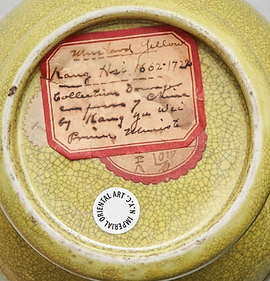 Mustard Yellow
Kang Hsi 1662-1722
Collection Dowager
Empress of China
by Kang Yu Wei
Prime Minister
IMPERIAL ORIENTAL ART N.Y.C.